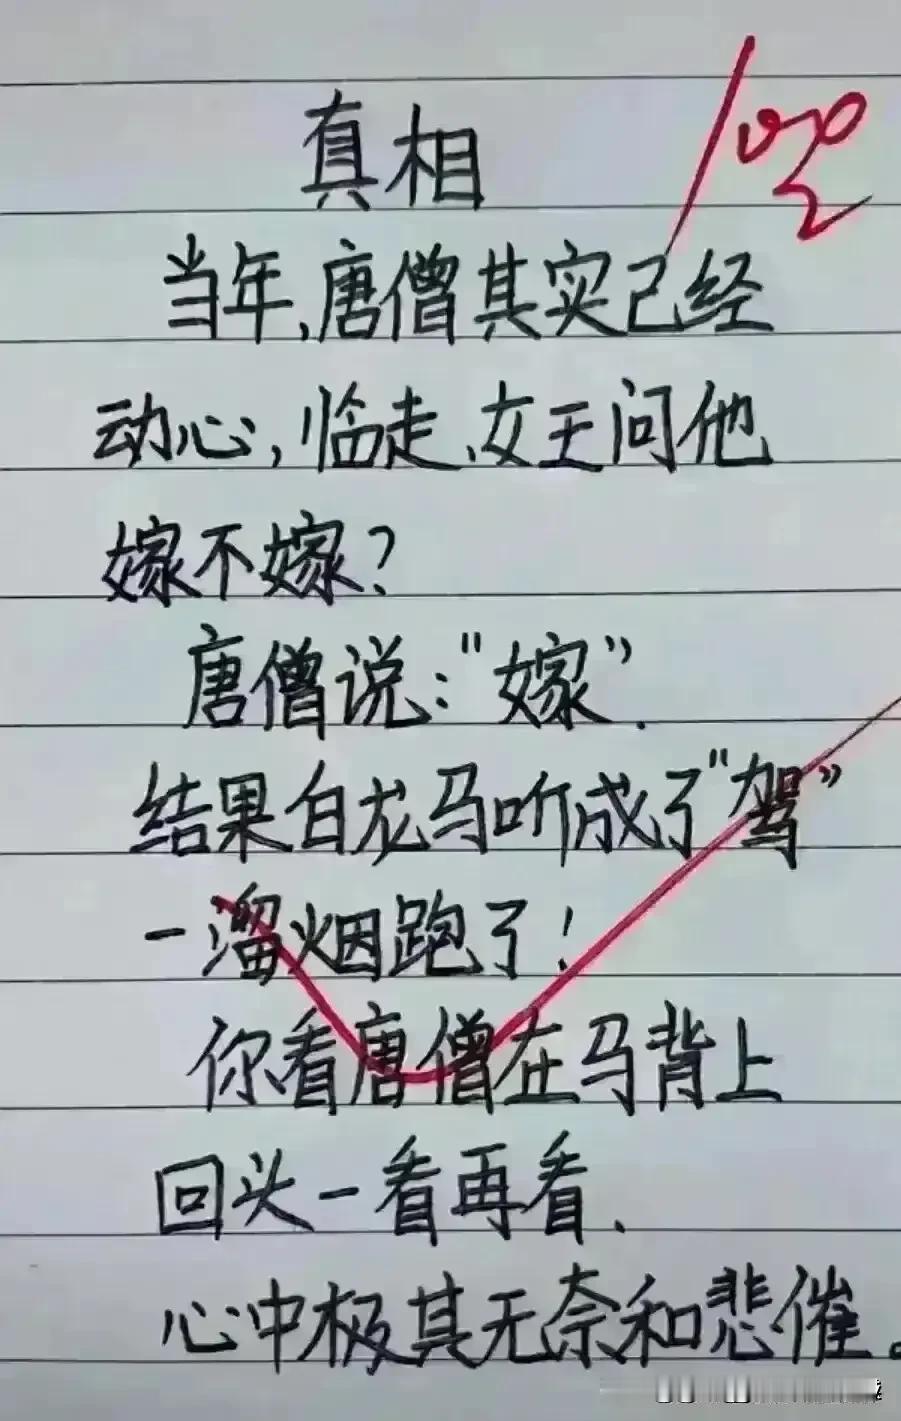 真相
当年、唐僧其实已经
动心，临走、女王问他
嫁不嫁？
唐僧说：“嫁”.
结果白龙马听成了“驾”
一溜烟跑了！
你看唐僧在马背上
回头一看再看.
心中极其无奈和悲催。